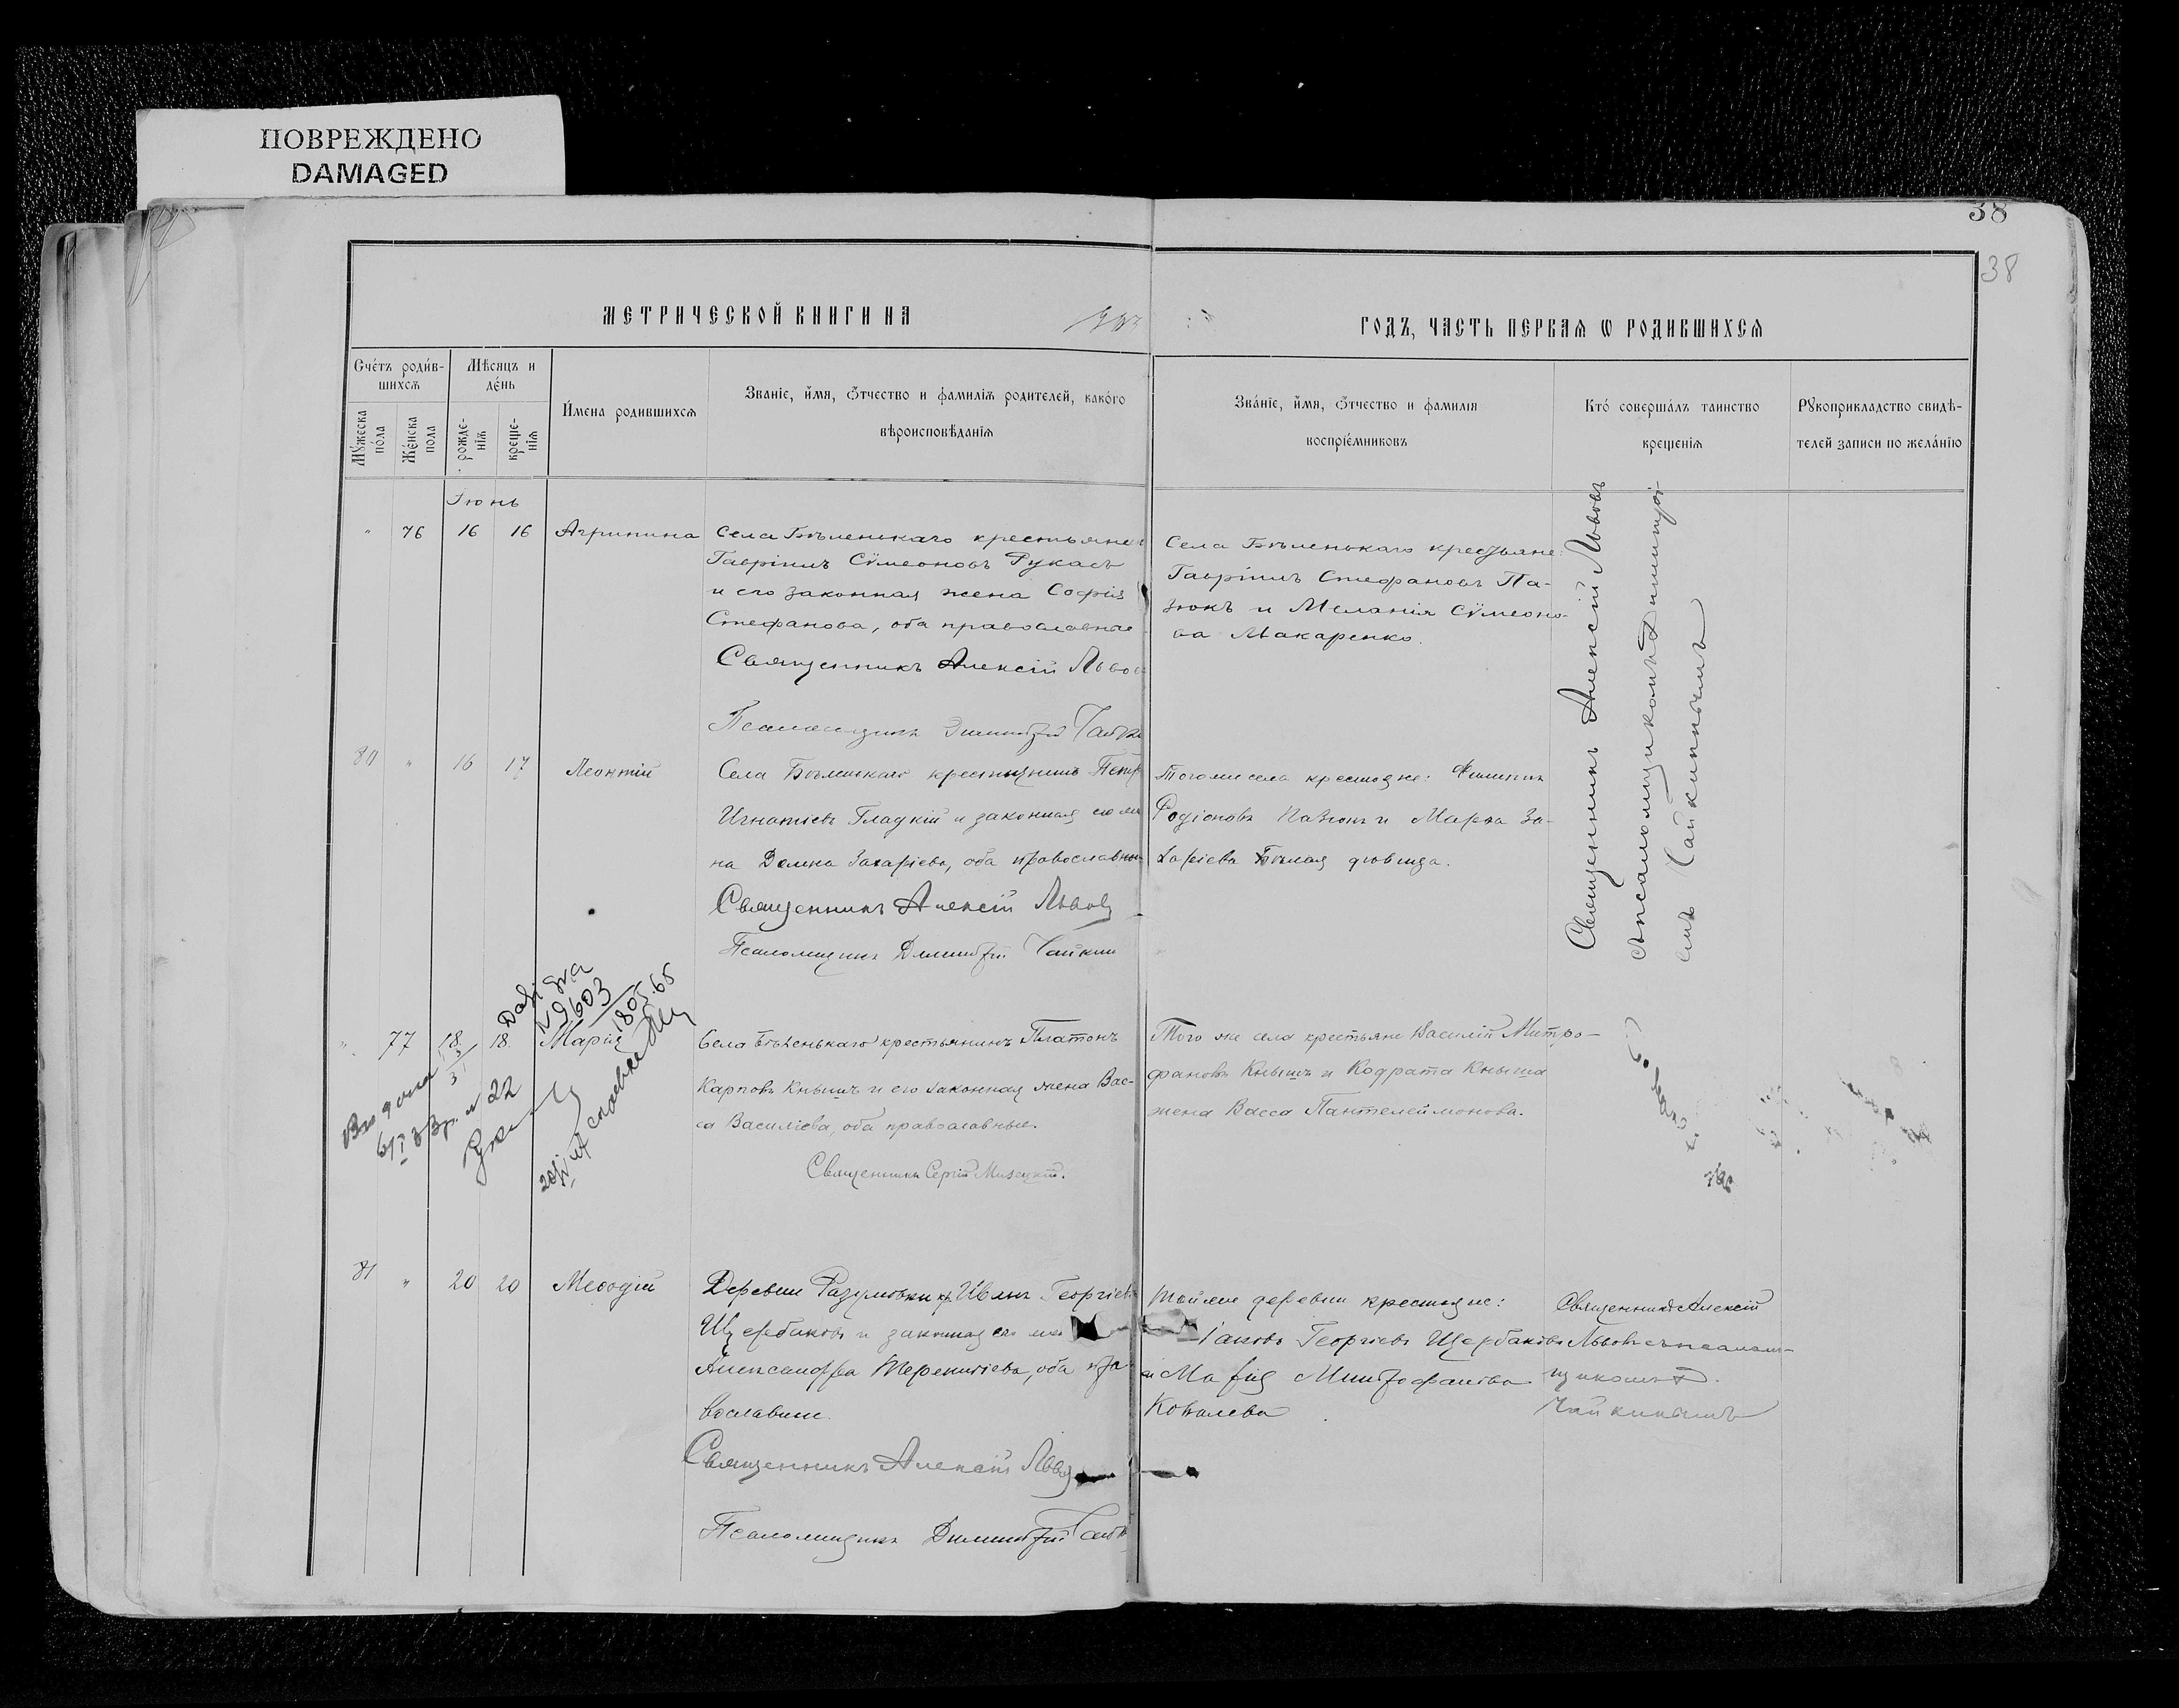 ПОВРЕЖДЕНО
DAMAGED
38
38
МЕТРИЧЕСКОЙ КНИГИ НА
ГОДЪ, ЧАСТЬ ПЕРВАЯ Ѡ РОДИВШИХСЯ
Счетъ родив-
шихся
Мѣсяцъ и
день
Мужеска
пола
Женска
пола
рожде-
нія
креще-
нія
Имена родившихся
Званіе, имя, отчество и фамилія родителей, какого
вѣроисповѣданія
Званіе, имя, отчество и фамилія
воспріемниковъ
Кто совершалъ таинство
крещенія
Рукоприкладство свидѣ-
телей записи по желанію
Іюнь
" 76 16 16 Агрипина
Села Бѣленькаго крестьяне
Гавріилъ Сѵмеоновъ Рукасъ
и его законная жена Софія
Стефанова, оба православные
Священникъ Алексій Львовъ
Псаломщикъ Димитрій
Села Бѣленькаго крестьяне:
Гавріилъ Стефановъ Па-
зюкъ и Меланія Сѵмеоно-
ва Макаренко.
Священникъ Алексій Львовъ
съ псаломщикомъ Димитрі-
емъ Чайкинымъ
80 " 16 17 Леонтій
Села Бѣленькаго крестьянинъ Петръ
Игнатіевъ Гладкій и законная его же-
на Домна Захаріева, оба православные
Священникъ Алексій Львовъ
Псаломщикъ Димитрій Чайкин
Того же села крестьяне: Филиппъ
Родіоновъ Пазюкъ и Марѳа За-
харіева Бѣлая дѣвица.
" 77 18 18. Марія
№ 9603
1805.65
22
Села Бѣленькаго крестьянинъ Платонъ
Карповъ Кнышъ и его законная жена Вас-
са Василіева, оба православные.
Священникъ Сергій Мизецкій.
Того же села крестьяне Василій Митро-
фановъ Кнышъ и Кодрата Кныша
жена Васса Пантелеймонова.
81 " 20 20 Меѳодій
Деревни Разумовки кр. Иванъ Георгіевъ
Щербаковъ и законная его же
Александра Терентіева, оба пра-
вославные.
Священникъ Алексій Львовъ
Псаломщикъ Димитрій
Той же деревни крестьяне:
Іаковъ Георгіевъ Щербаковъ
и Марія Митрофанова
Ковалева
Священникъ Алексій
Львовъ съ псалом-
щикомъ Д.
Чайкинымъ